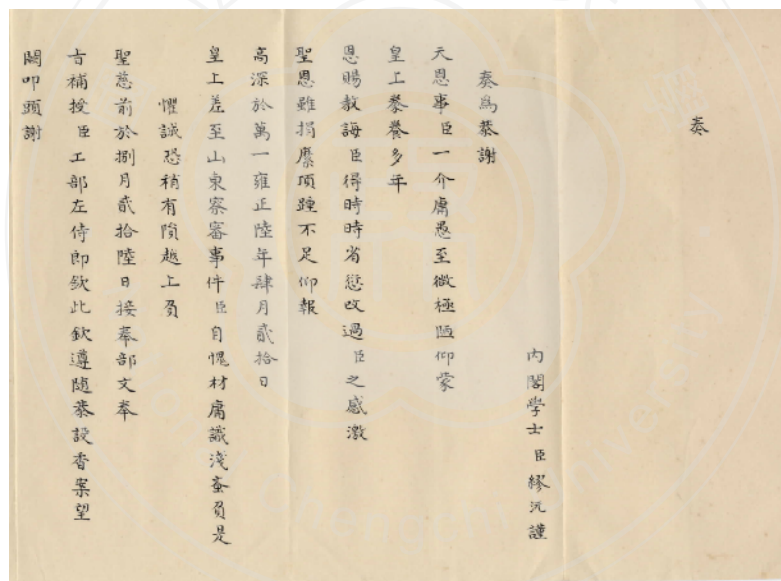 奏
內閣學士臣繆沅謹
奏為恭謝
天恩事臣一介庸愚至微極陋仰蒙
皇上豢養多年
恩賜教誨臣得時時省愆改過臣之感激
聖恩雖捐糜頂踵不足仰報
高深於萬一雍正陸年肆月貳拾日
皇上差至山東察審事件臣自愧材庸識淺蚉負是
懼誠恐稍有隕越上負
聖慈前於捌月貳拾陸日接奉部文奉
旨補授臣工部左侍郎欽此欽遵隨恭設香案望
闕叩頭謝